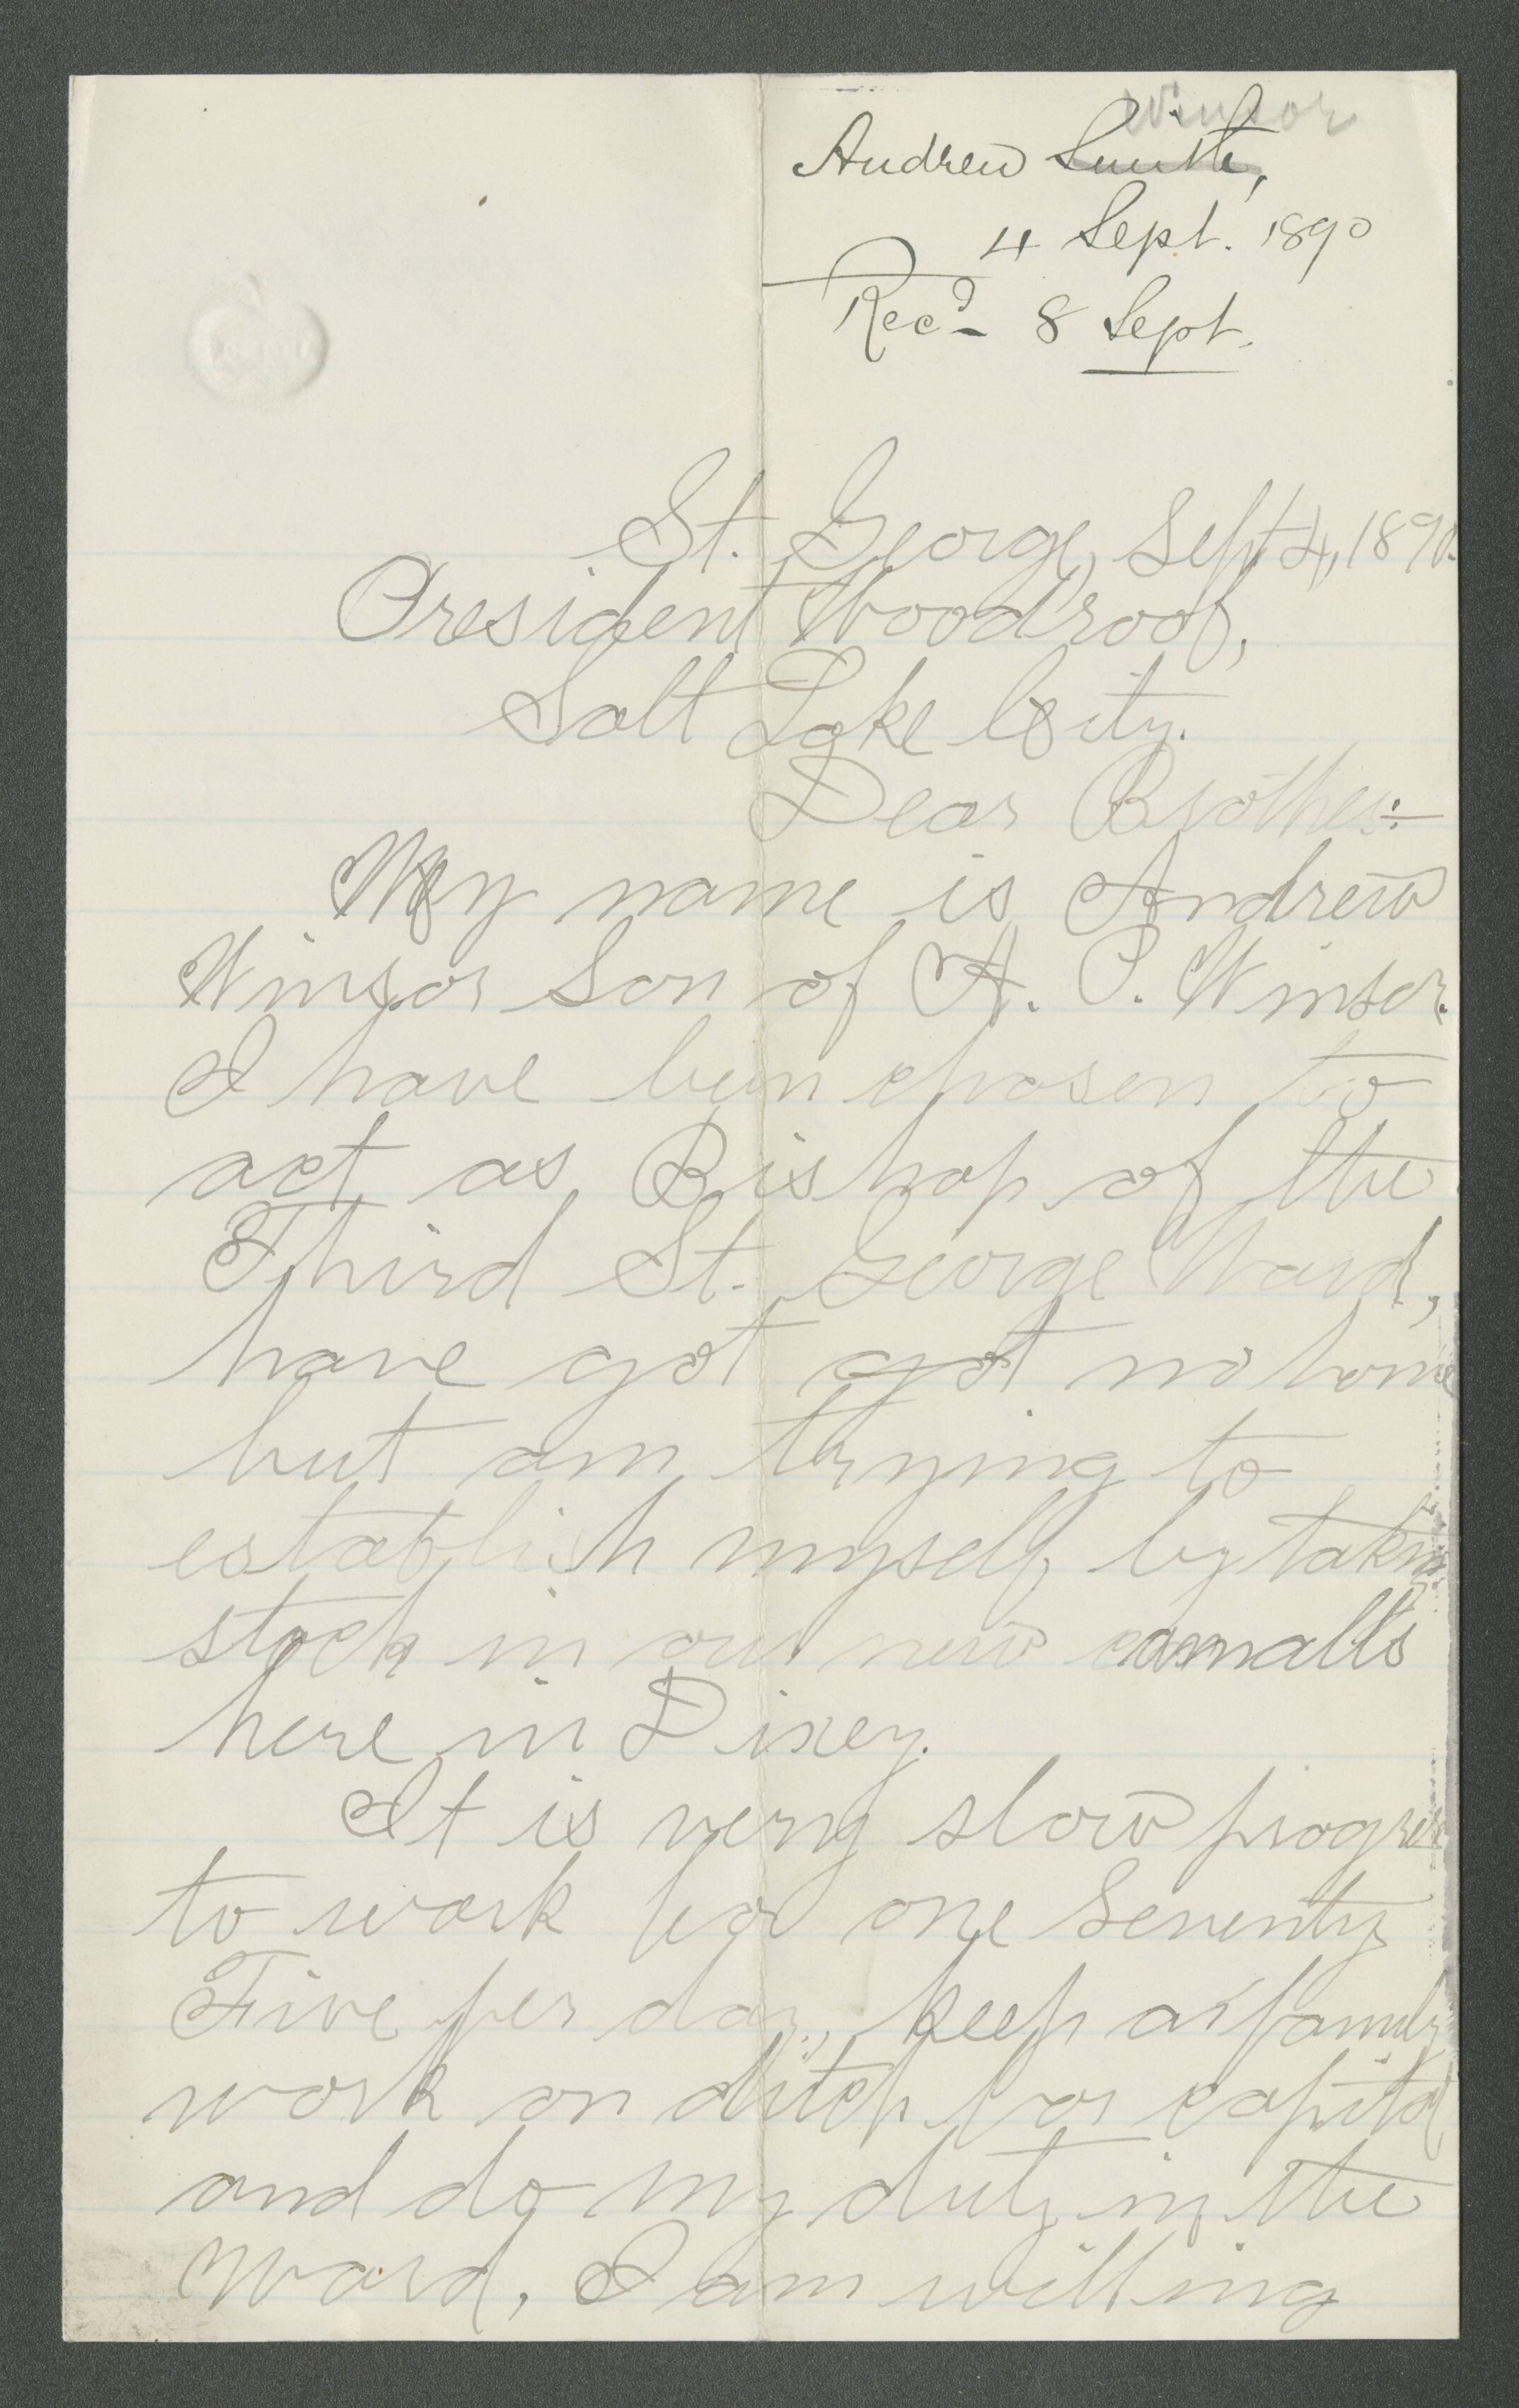 Winsor
Andrew Smith,
4 Sept. 1890
Rec'd 8 Sept.
St. George, Sept 4, 1890.
President Woodroof,
Salt Lake City.
Dear Brother:
My name is Andrew
Winsor Son of A. P. Winsor.
I have been chosen to
act as Bishop of the
Third St. George Ward,
have got got no home
but am trying to
establish myself by takin
stock in our new canalls
here in Dixey.
It is very slow progres
to work for one Seventy
Five per day, keep a family
work on ditch for capital
and do my duty in the
Ward, I am willing